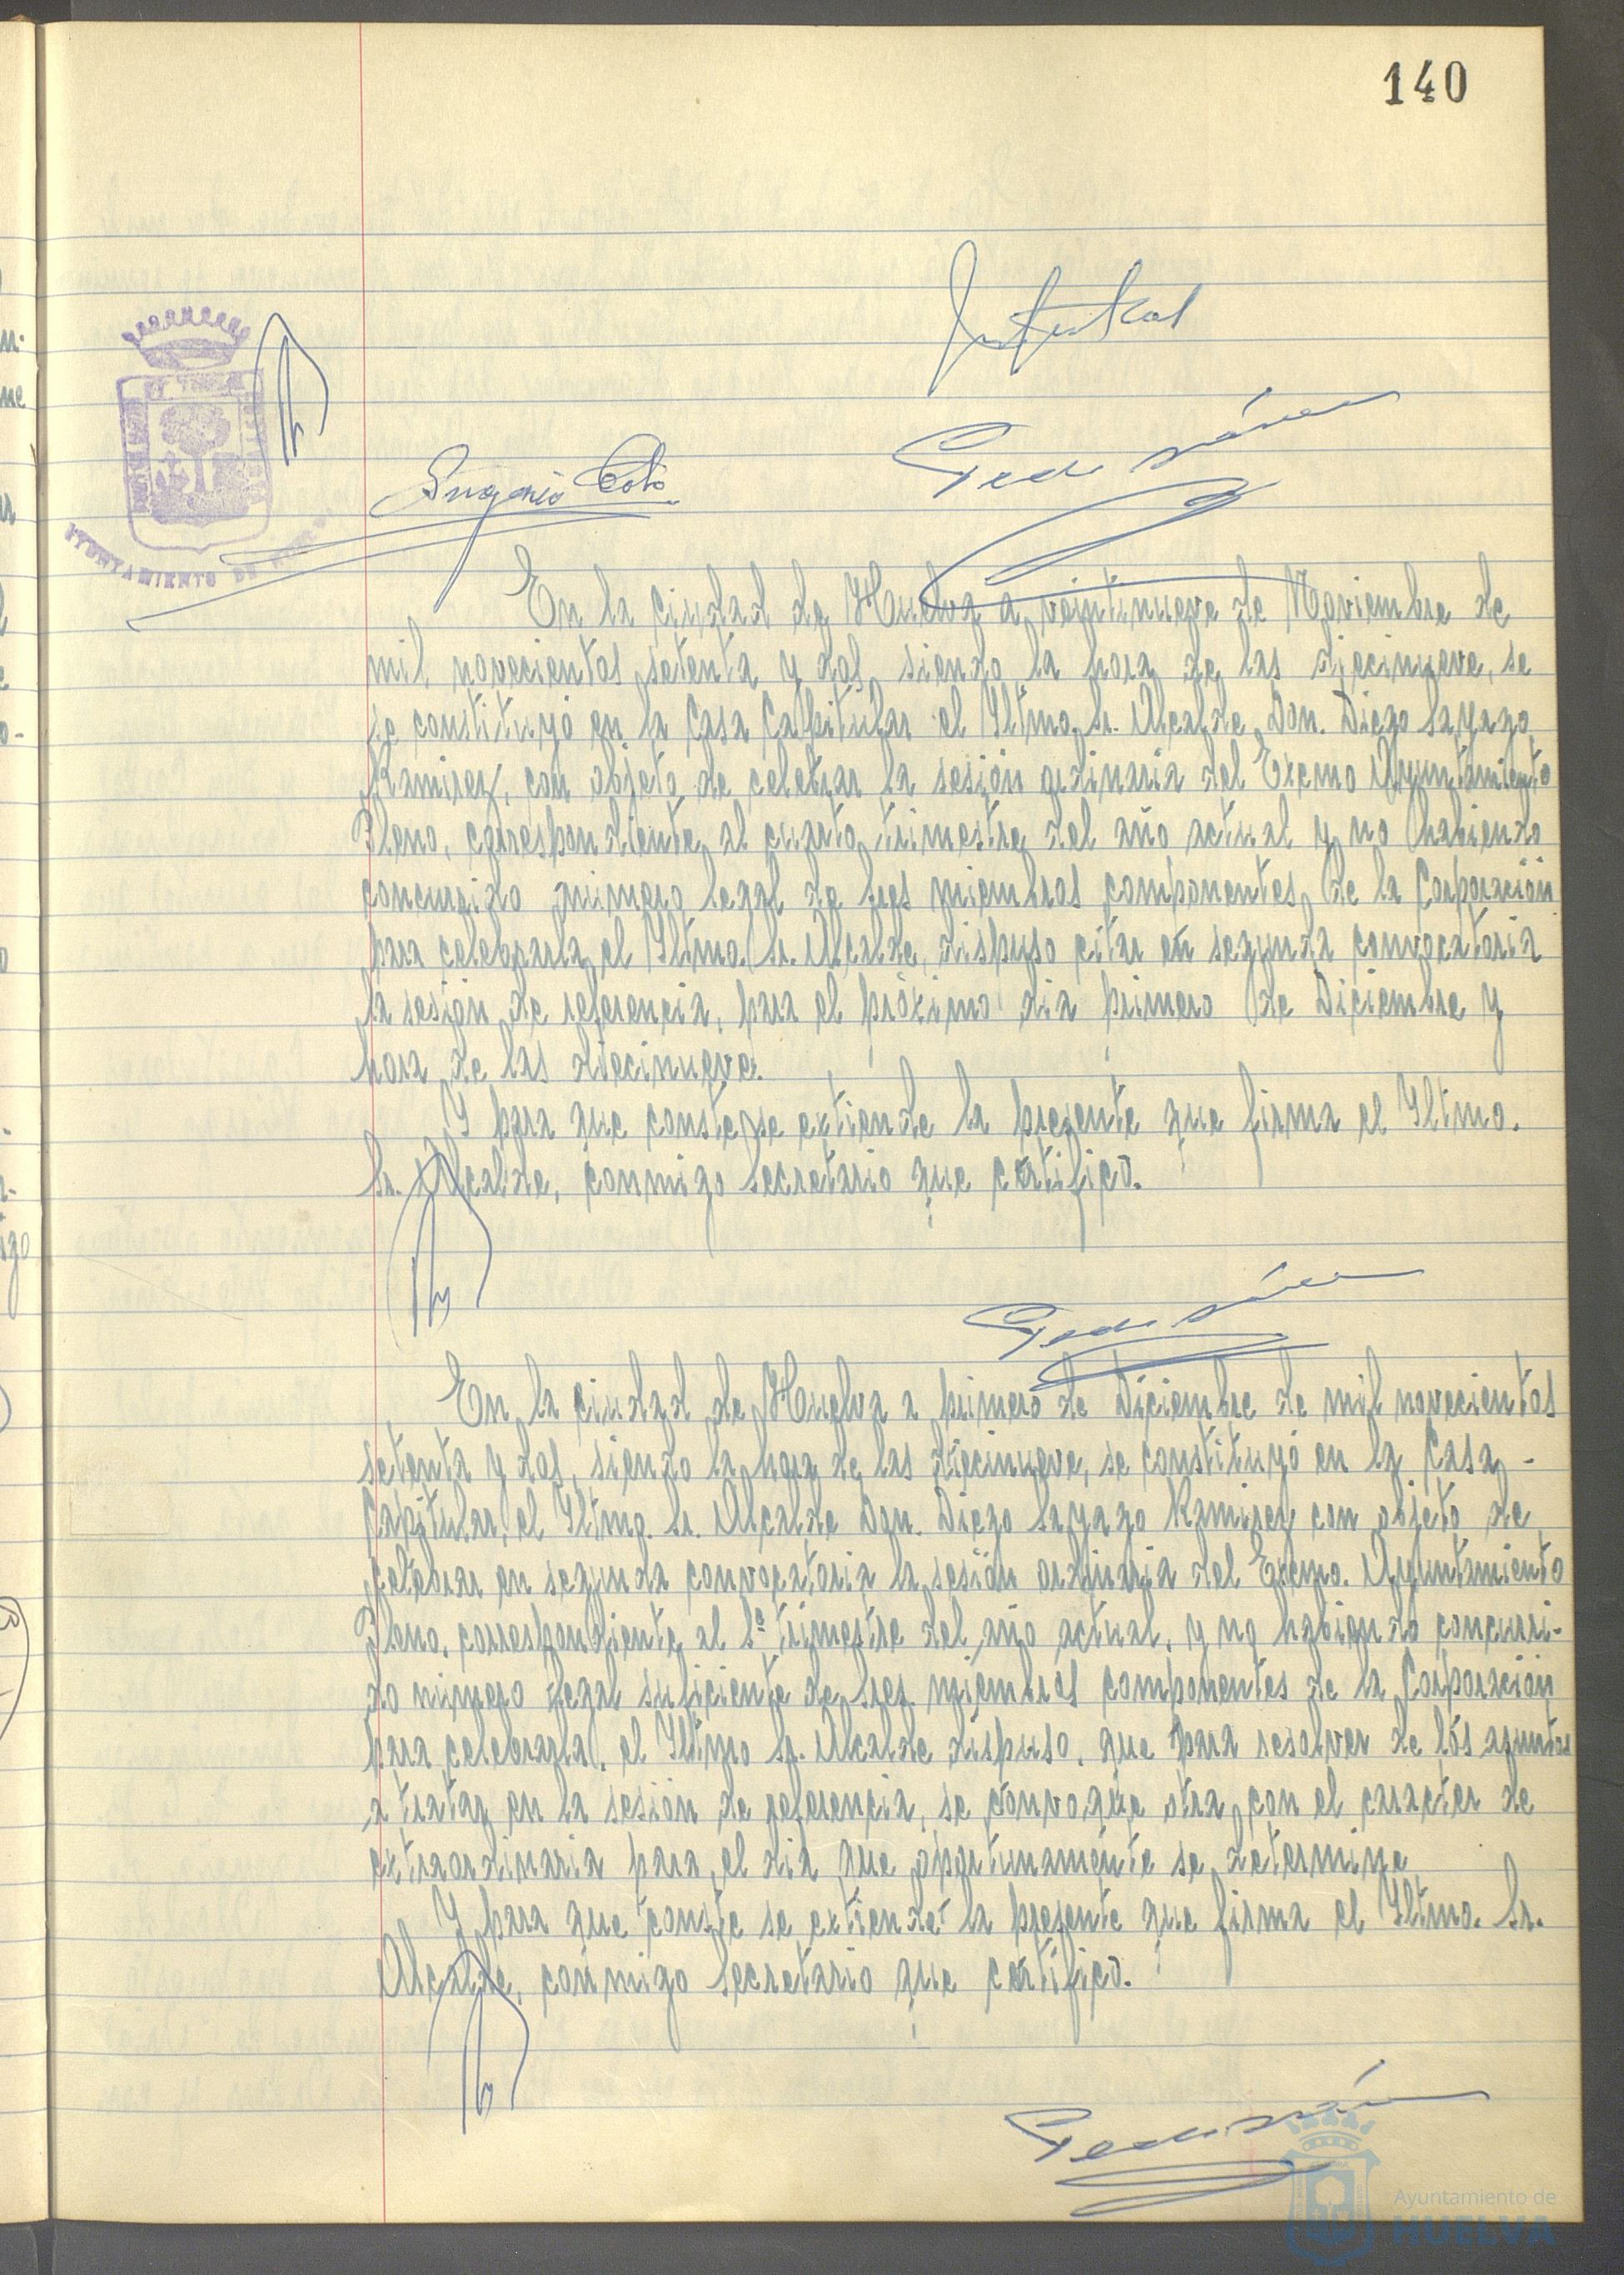 140
AYUNTAMIENTO DE
Eugenio
En la ciudad de Huelva a veintinueve de Noviembre de
mil novecientos setenta y dos, siendo la hora de las diecinueve, se
se constituyó en la Casa Capitular el Iltmo. Sr. Alcalde, Don. Diego Sayago
Ramirez, con objeto de celebrar la sesión ordinaria del Excmo Ayuntamiento
Pleno, correspondiente al cuarto trimestre del año actual y no habiendo
concurrido número legal de Sres miembros componentes de la Corporación
para celebrarla el Iltmo. Sr. Alcalde, dispuso citar en segunda convocatoria
la sesión de referencia, para el próximo dia primero de Diciembre y
hora de las diecinueve.
Y para que conste se extiende la presente que firma el Iltmo.
Sr. Alcalde, conmigo Secretario que certifico.
En la ciudad de Huelva a primero de Diciembre de mil novecientos
setenta y dos, siendo la hora de las diecinueve, se constituyó en la Casa -
Capitular, el Iltmo. Sr. Alcalde Don. Diego Sayago Ramirez con objeto de
celebrar en segunda convocatoria la sesión ordinaria del Excmo. Ayuntamiento
Pleno, correspondiente al trimestre del año actual, y no habiendo concurri-
do número legal suficiente de Sres. miembros componentes de la Corporación
para celebrarla, el Iltmo Sr. Alcalde dispuso, que para resolver de los asuntos
a tratar en la sesión de referencia, se convoque otra con el caracter de
extraordinaria para el dia que oportunamente se determine
Y para que conste se extiende la presente que firma el Iltmo. Sr.
Alcalde, conmigo Secretario que certifico.
Ayuntamiento de
HUELVA